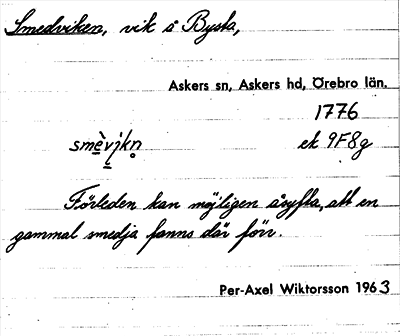 Smedviken, vik å Bysta,
Askers sn, Askers hd, Örebro län.
1776
smèvikn̥ ek 9F8g
Förleden kan möjligen åsyfta, att en
gammal smedja fanns där förr.
Per-Axel Wiktorsson 1963